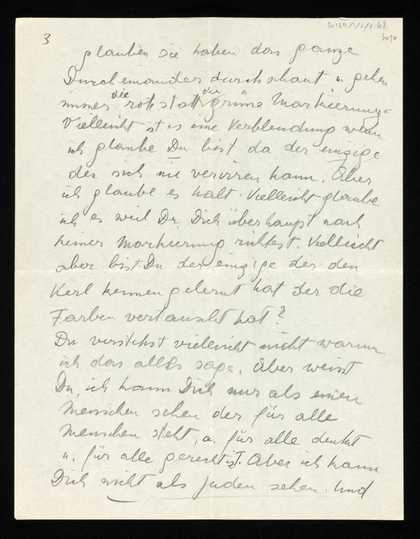 3
glauben sie haben das ganze
Durcheinander durchschaut u. gehen
immer die rote statt die grüne Markierung.
Vielleicht ist es eine Verblendung wenn
ich glaube Du bist da der einzige
der sich nie verirren kann. Aber
ich glaube es halt. Vielleicht glaube
ich es weil Du Dich überhaupt nach
keiner Markierung richtest. Vielleicht
aber bist Du der einzige der den
Kerl kennen gelernt hat der die
Farben vertauscht hat?
Du verstehst vielleicht nicht warum
ich das alles sage. Aber weisst
Du, ich kann Dich nur als einen
Menschen sehen der für alle
Menschen steht, u. für alle denkt
u. für alle gerecht ist. Aber ich kann
Dich nicht als Juden sehen. Und